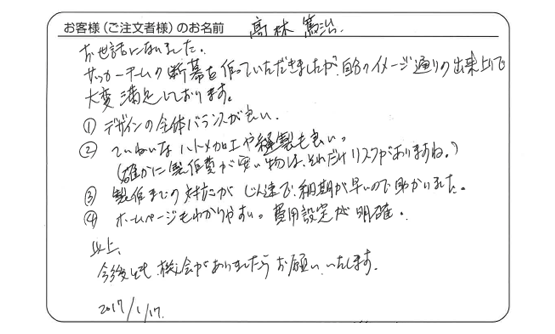 お客様（ご注文者様）のお名前　髙林 篤治.
お世話になりました。
サッカーチームの断幕を作っていただきましたが、自分のイメージ通りの出来上りで
大変満足しております。
① デザインの全体バランスが良い.
② ていねいなハトメ加工や縫製も良い。
（確かに製作費が安い物は、それだけリスクがありますね。）
③ 製作までの対応がじん速で、納期が早いので助かりました。
④ ホームページもわかりやすい。費用設定が明確。
以上、
今後とも機会がありましたらお願いいたします.
2017/1/17.